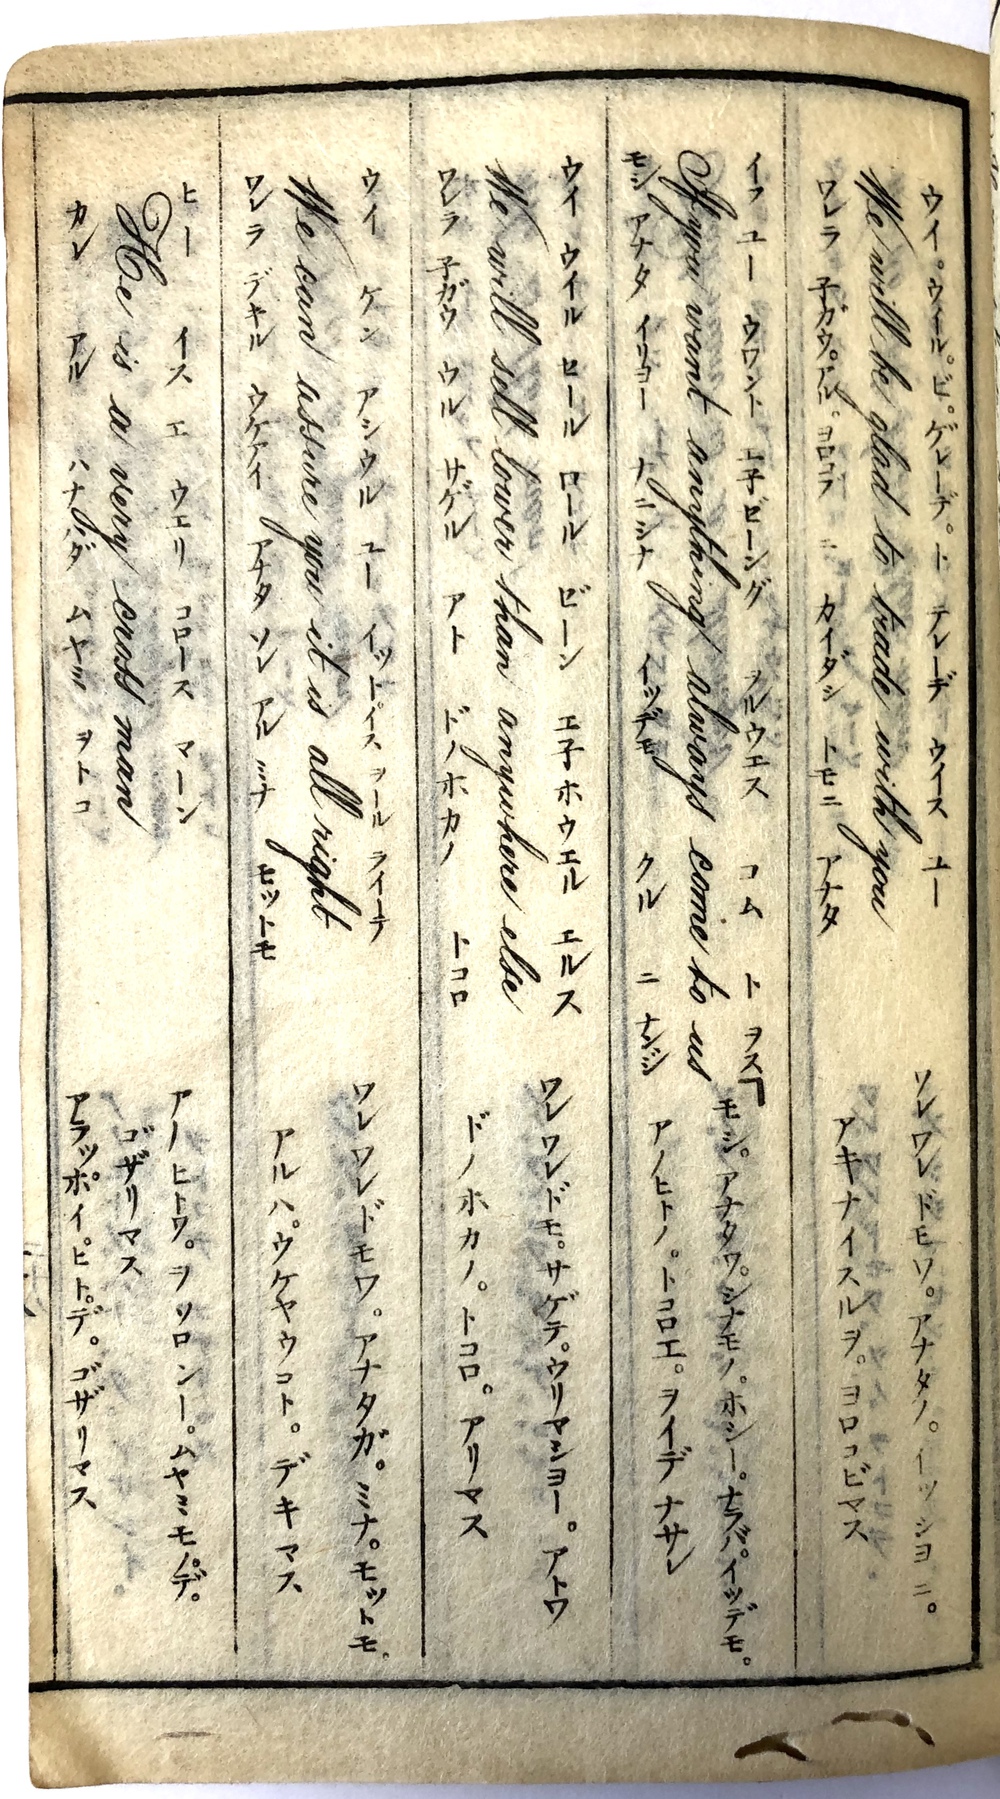 ウイ。ウイル。ビ。ゲレーデ。ト テレーデ ウイス ユー
We will be glad to trade with you
ワレラ 子ガウ。アル。ヨロコブ ニ カイダシ トモニ アナタ
ワレワレドモワ。アナタノ。イツシヨニ。
アキナイスルヲ。ヨロコビマス
イフ ユー ウワント エ子ビーング ヲルウエス コム ト ヲス
If you want anything always come to us
モシ アナタ イリヨー ナニシナ イツデモ クル ニ ナンジ
モシ。アナタワ。シナモノ。ホシー。ナラバ。イツデモ。
アノヒトノ。トコロエ。ヲイデナサレ
ウイ ウイル セール ロール ビーン エ子ホウエル エルス
We will sell lower than anywhere else
ワレラ 子ガウ ウル サゲル アト ドノホカノ トコロ
ワレワレドモ。サゲテ。ウリマシヨー。アトワ
ドノホカノ。トコロ。アリマス
ウイ ケン アシウル ユー イツトイス ヲール ライーテ
We can assure you it is all right
ワレラ デキル ウケアイ アナタ ソレ アル ミナ モツトモ
ワレワレドモワ。アナタガ。ミナ。モツトモ。
アルハ。ウケヤウコト。デキマス
ヒー イス エ ウエリ コロース マーン
He is a very cross man
カレ アル ハナハダ ムヤミ ヲトコ
アノヒトワ。ヲソロシー。ムヤミモノデ。
ゴザリマス
アラツポイ。ヒトデ。ゴザリマス